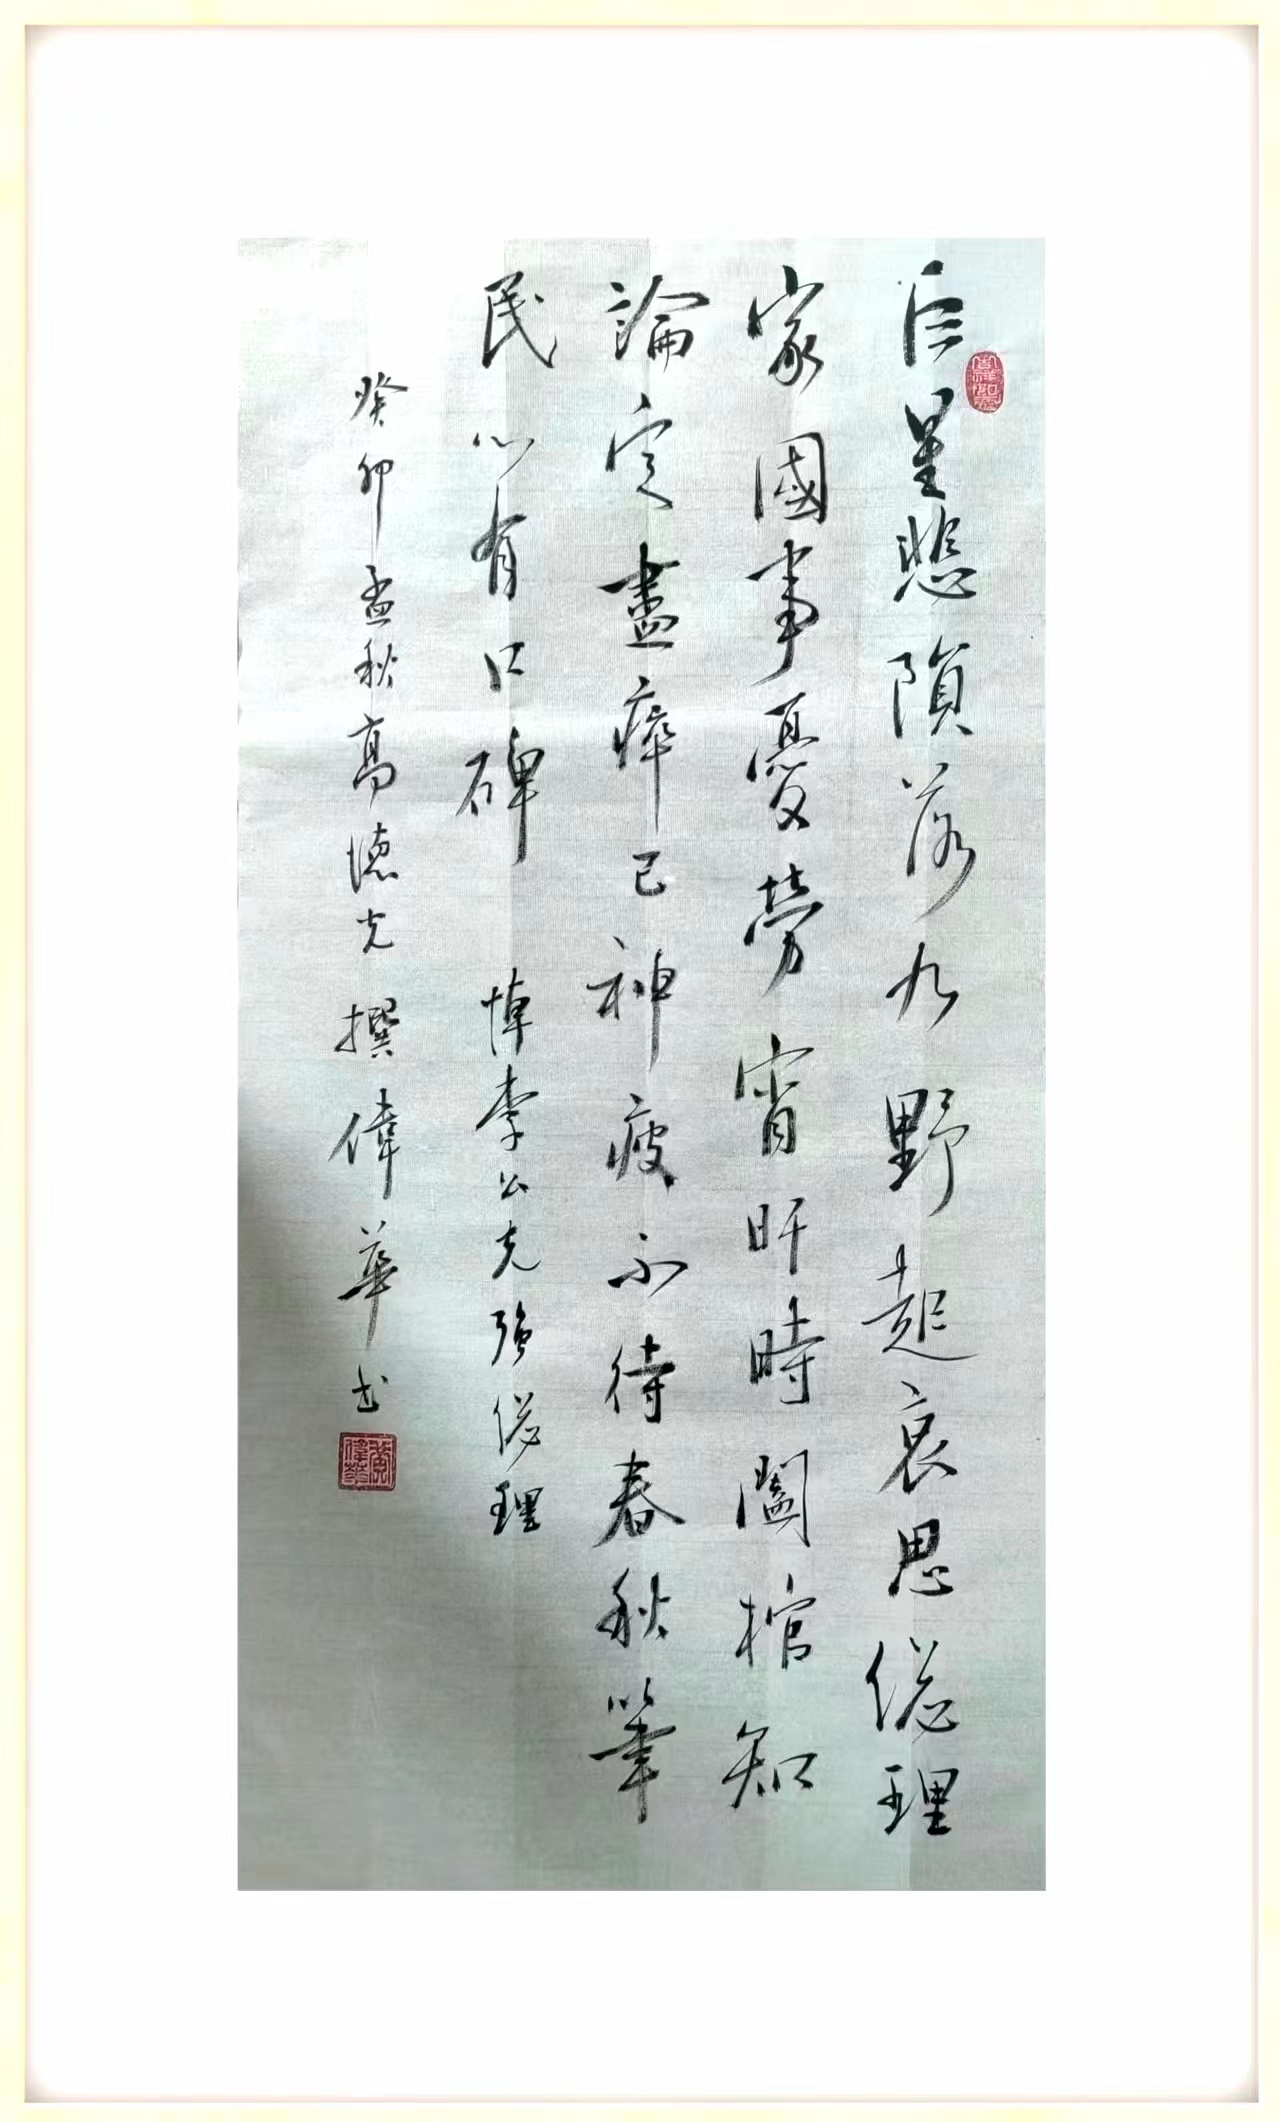 巨星悲隕落九野起哀思總理
家國事憂勞宵旰時闔棺知
論定盡瘁已神疲不待春秋筆
民心有口碑 悼李公克強總理
癸卯孟秋高德光 撰偉華书